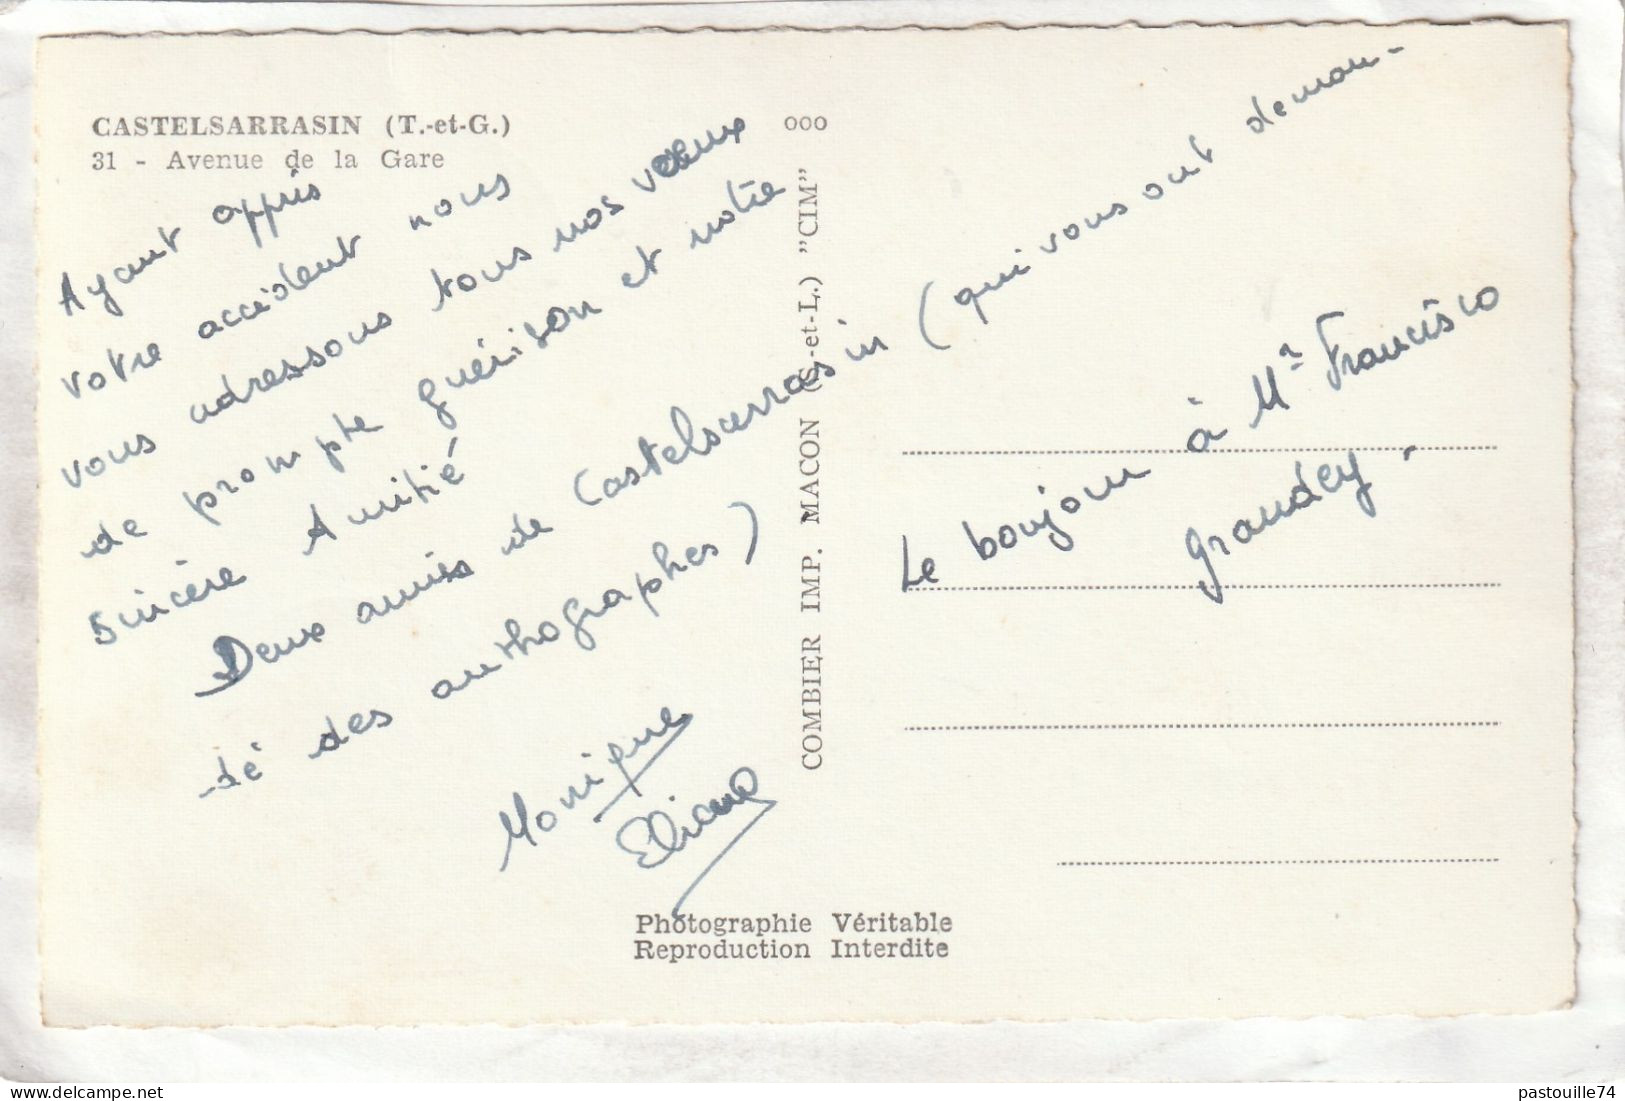 CASTELSARRASIN (T.-et-G.)
31 - Avenue de la Gare
ooo
Ayant appris
votre accident nous
vous adressons tous nos vœux
de prompte guérison et notre
sincère Amitié
Deux amies de Castelsarrasin (qui vous ont deman-
-dé des authographes)
Monique
Eliane
COMBIER IMP. MACON (S.-et-L.) "CIM"
Le bonjour à Mr Francisco
grandey -
Photographie Véritable
Reproduction Interdite
delcampe.net
pastouille74